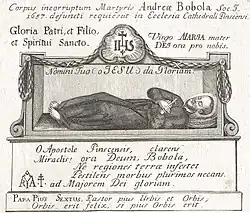 Corpus incorruptum Martyris Andreæ Bobola Soc. I.
1657. defuncti requiescit in Ecclesia Cathedrali Pinscensi.
Gloria Patri, et Filio,
et Spiritui Sancto.
IHS
Virgo MARIA mater
DEI ora pro nobis.
Nomini Tuo O IESU da Gloriam.
O Apostole Pinscensis, clarens
Miraclis; ora Deum, Bobola,
Ne regiones terra infestet
Pestilens morbus plurimos necans.
ad Majorem Dei gloriam.
PAPA PIUS SEXTUS, Pastor pius Urbis et Orbis,
Orbis erit felix, si pius Orbis erit.